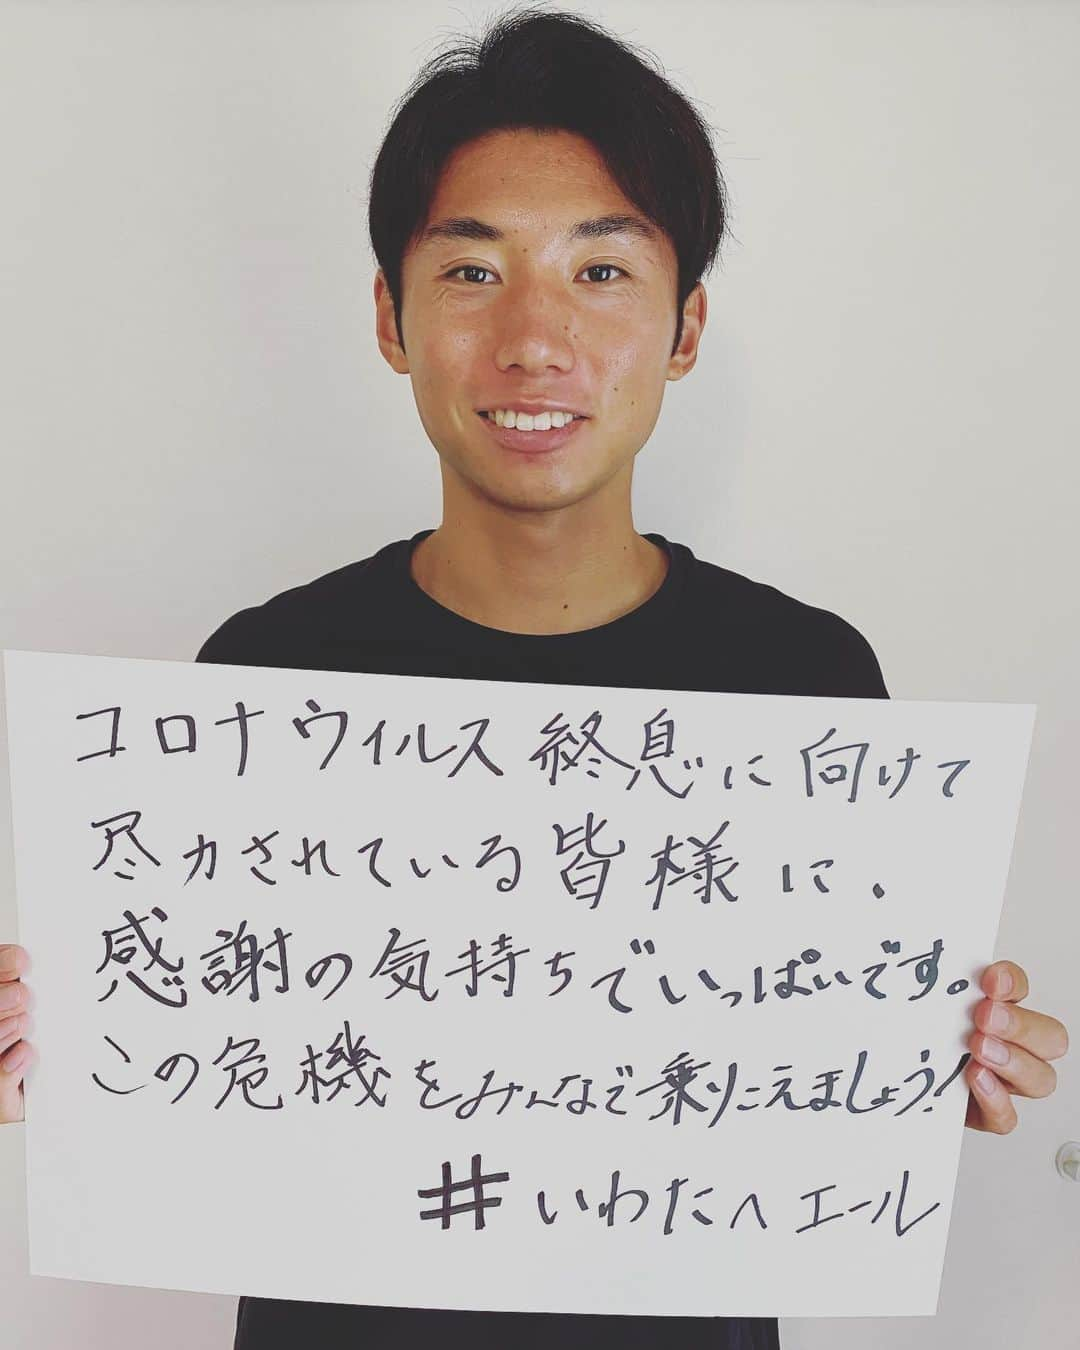 コロナウィルス終息に向けて
尽力されている皆様に、
感謝の気持ちでいっぱいです。
この危機をみんなで乗りこえましょう!
#いわたへエール